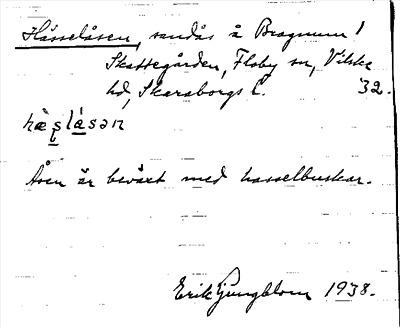 Hässelåsen, sandås å Bragnum 1
Skattegården, Floby sn, Vilske
hd, Skaraborgs l. 32.
hæ̀ʂlå̀sən
Åsen är beväxt med hasselbuskar.
Erik Ljungblom 1938.